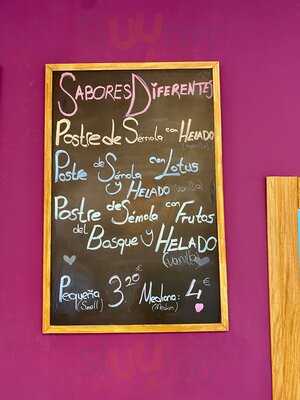 SABORES DIFERENTES
Postre de Sémola con HELADO
(vainilla)
Postre de Sémola con Lotus
y HELADO (vanilla)
Postre de Sémola con Frutas
del Bosque y HELADO
(vanilla)
Pequeña 3'20€ Mediana: 4€
(Small) (Medium)